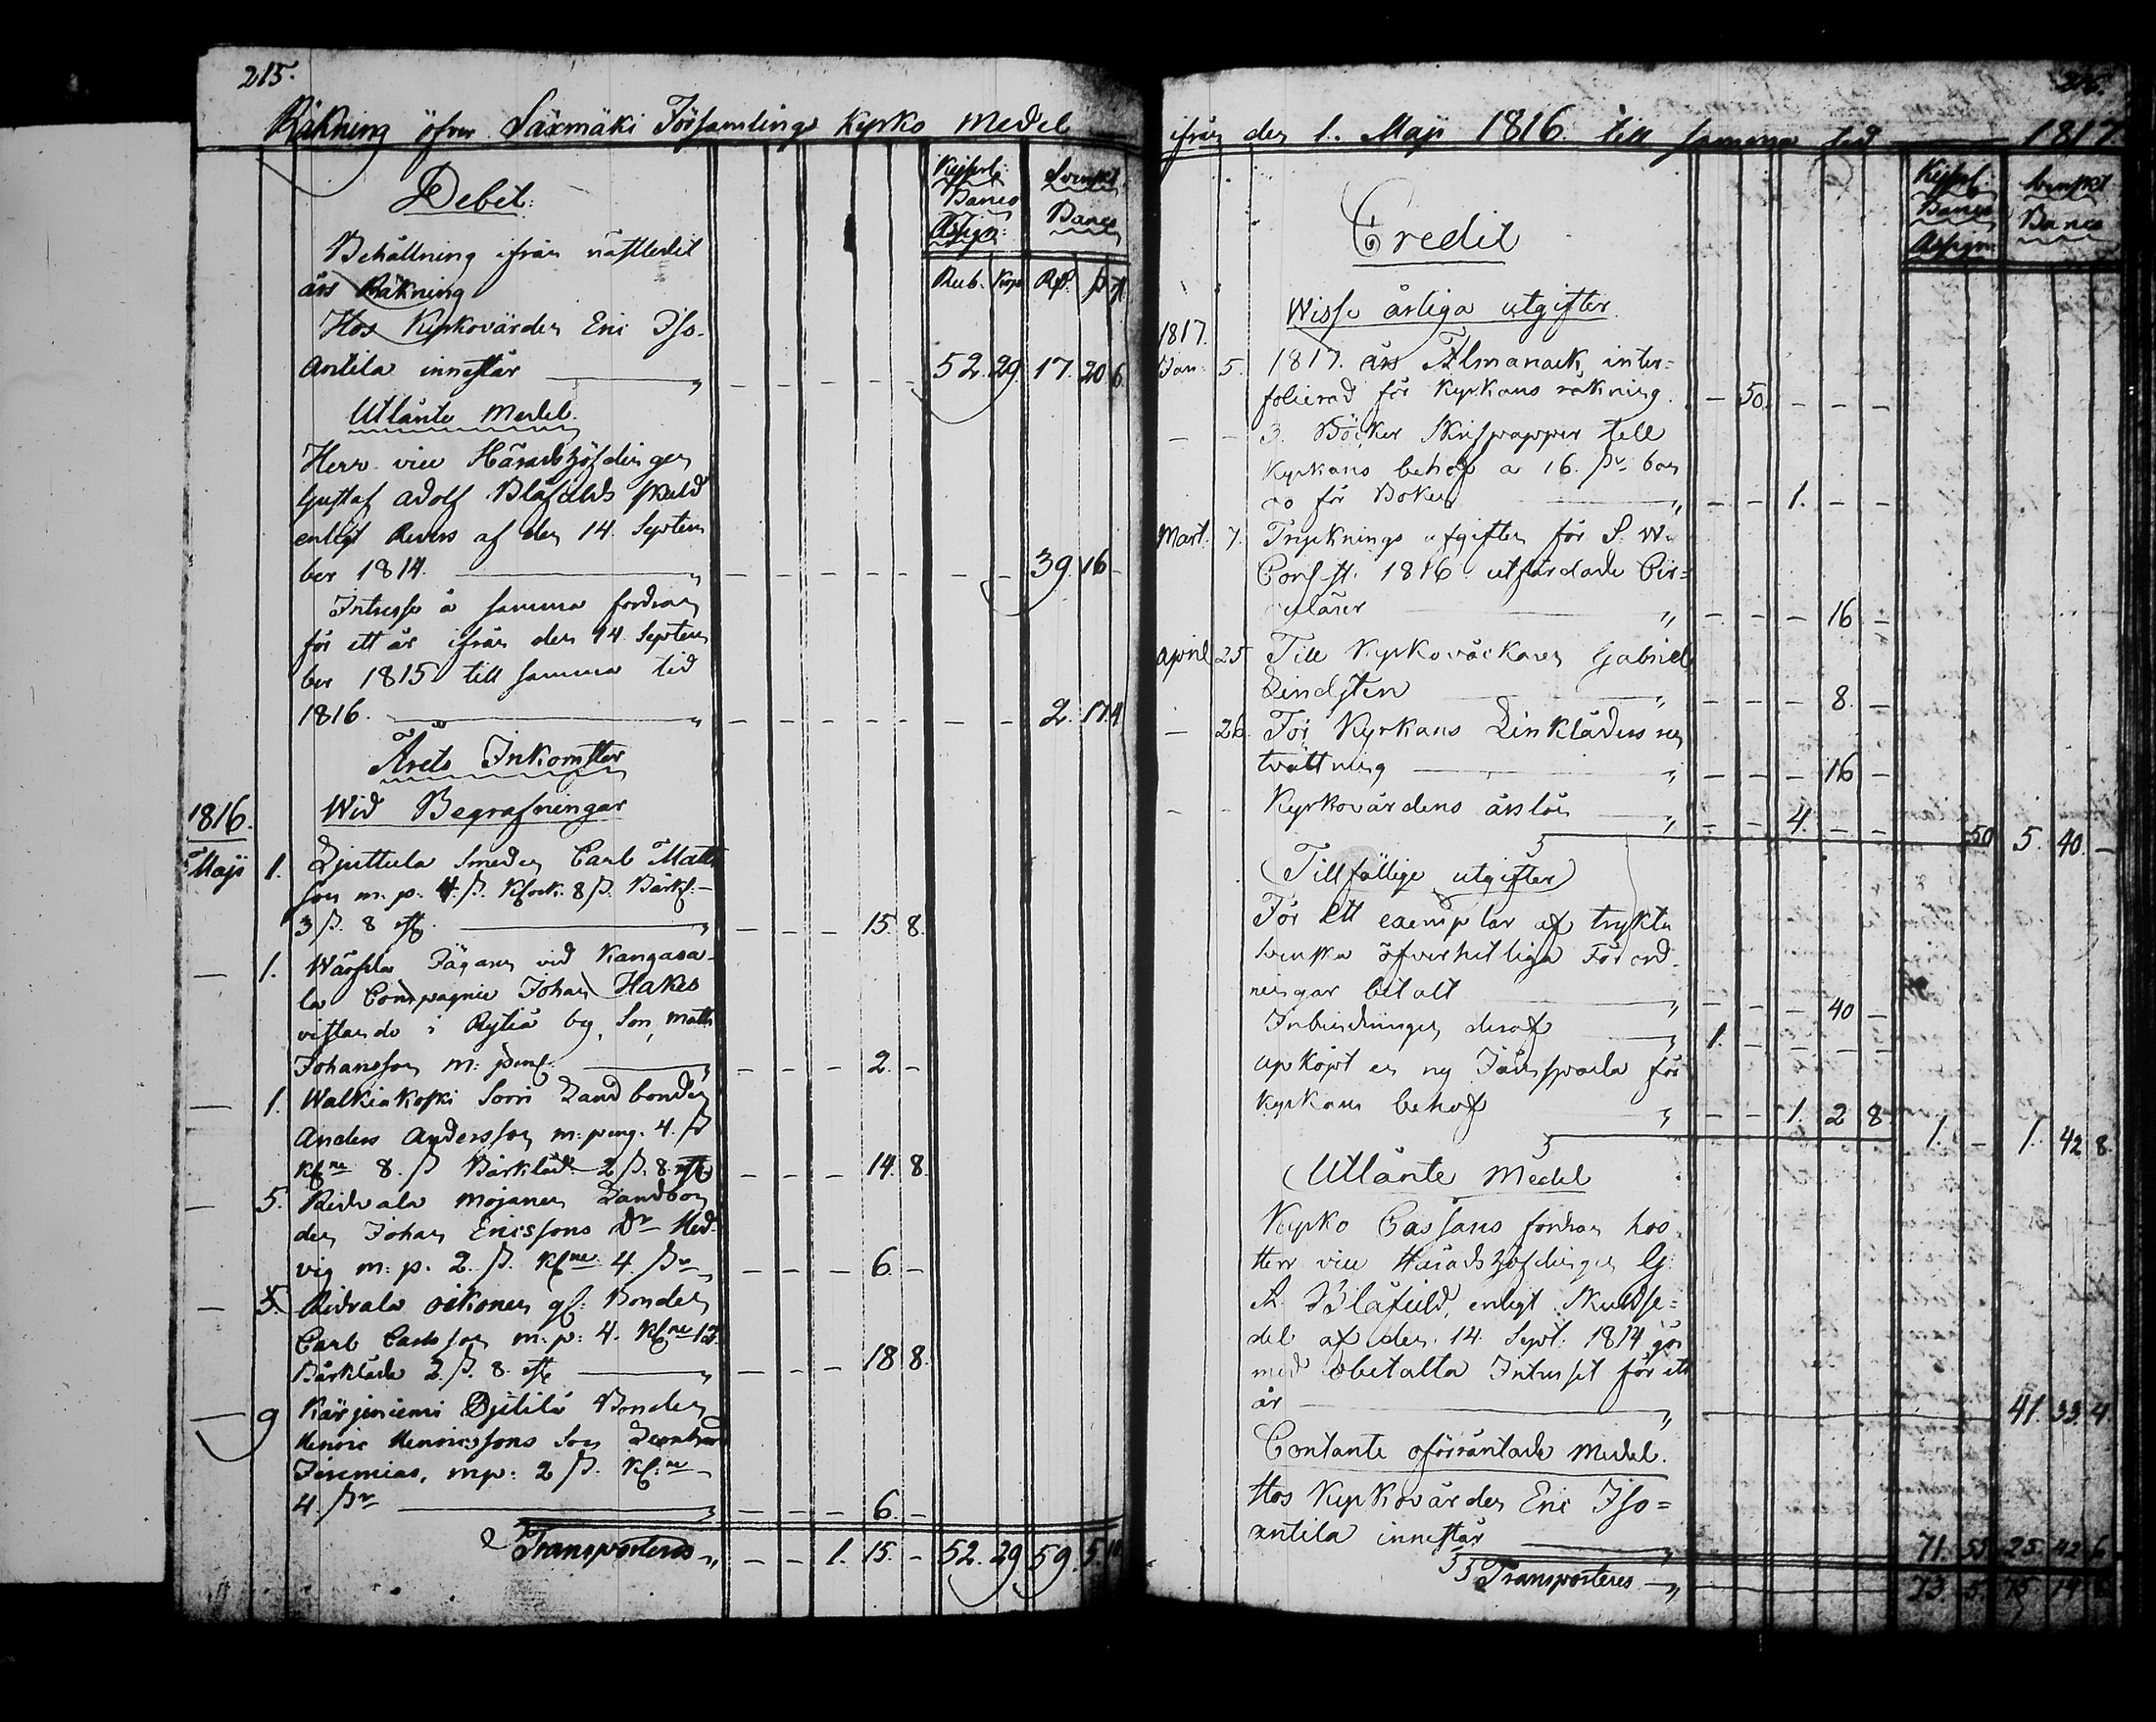 215.
Räkning öfver Säxmäki Församlings Kyrko Medel
Debet:
Kejserl: Svenskt
Banco Banco
Assign:
Rub. Kop. Rd. ß rst
Behållning ifrån nästledit
års Räkning
Hos Kyrkovärden Eric Iso-
Antila innestår " – – – – – 52. 29. 17. 20 6.
Utlånte Medel.
Herr vice Häradshöfdingen
Gustaf Adolf Blåfields skuld
enligt Revers af den 14. Septem
ber 1814. " – – – – – – – 39. 16 –
Intresse å samma fordran
för ett år ifrån den 14. Septem
ber 1815 till samma tid
1816. " – – – – – – – 2. 17. 4.
Årets Inkomster
1816. Wid Begrafningar
Maji 1. Smeden Carl Matts
son m. p. 4. ß. Klock. 8 ß. Bårkl:
3 ß. 8 rst. " – – – 15. 8.
— 1. Jägaren vid Kangasa-
la Compagnie Johan Hakes
vistande i Rytiä by, Son Matts
Johansson m: peng: " – – – 2. –
— 1. Walkiakoski Sorri Landbonden
Anders Andersson m: peng. 4. ß
Klne 8. ß Bårkläde 2 ß. 8 rst – – – 14. 8.
— 5. Ridvala Mojanen Landbon
den Johan Ericssons Dr Hed-
vig m: p. 2. ß. Klne 4. ß – – – 6. –
— 5. Ridvala Oikonen gl: Bonden
Carl Carlsson m: p: 4. Klne 12.
Bårkläde 2 ß. 8. rst " – – – 18 8.
— 9 Kärjenniemi Bonden
Henric Henricssons Son
Jeremias, mp: 2 ß. Kl:ne
4. ß " – – – 6. –
Transporteres " – – 1. 15. – 52. 29 59. 5. 10
ifrån den 1. Maji 1816. till samma tid 1817.
Credit
Kejserl: Svenskt
Banco Banco
Assign:
Wisse årliga utgifter
1817.
Jan: 5. 1817. års Almanack, inter-
folierad för Kyrkans räkning. – 50. – – –
— – 3. Böcker Skrifpapper till
Kyrkans behof a 16. ß ban
co för Boken " – – 1. – –
Mart: 7. Tryknings afgiften för S. W.
Consist. 1816 utfärdade Cir-
culärer " – – – 16 –
April 25 Till Kyrkoväckaren Gabriel
Lindsten " – – – 8. –
— 26. För Kyrkans Linkläders
tvättning " – – – 16 –
– – Kyrkovärdens årslön " – – 4. – – 50 5. 40. –
Tillfällige utgifter
För ett exemplar af trykta
Svenska öfverhetliga Förord-
ningar betalt " – – – 40 –
Inbindningen deraf " 1. – – – –
upköpt en ny Järnspada för
Kyrkans behof " – – 1. 2 8. 1. – 1. 42 8.
Utlånte Medel
Kyrko Cassans fordran hos
Herr vice Häradshöfdingen G:
A. Blåfield, enligt Skuldse-
del af den 14. Sept. 1814 gör
med obetalta Intresset för ett
år " 41. 33. 4
Contante oförräntade Medel.
Hos Kyrkovärden Eric Iso-
antila innestår " 71. 55. 25. 42 6
Transporteres " 73. 5.